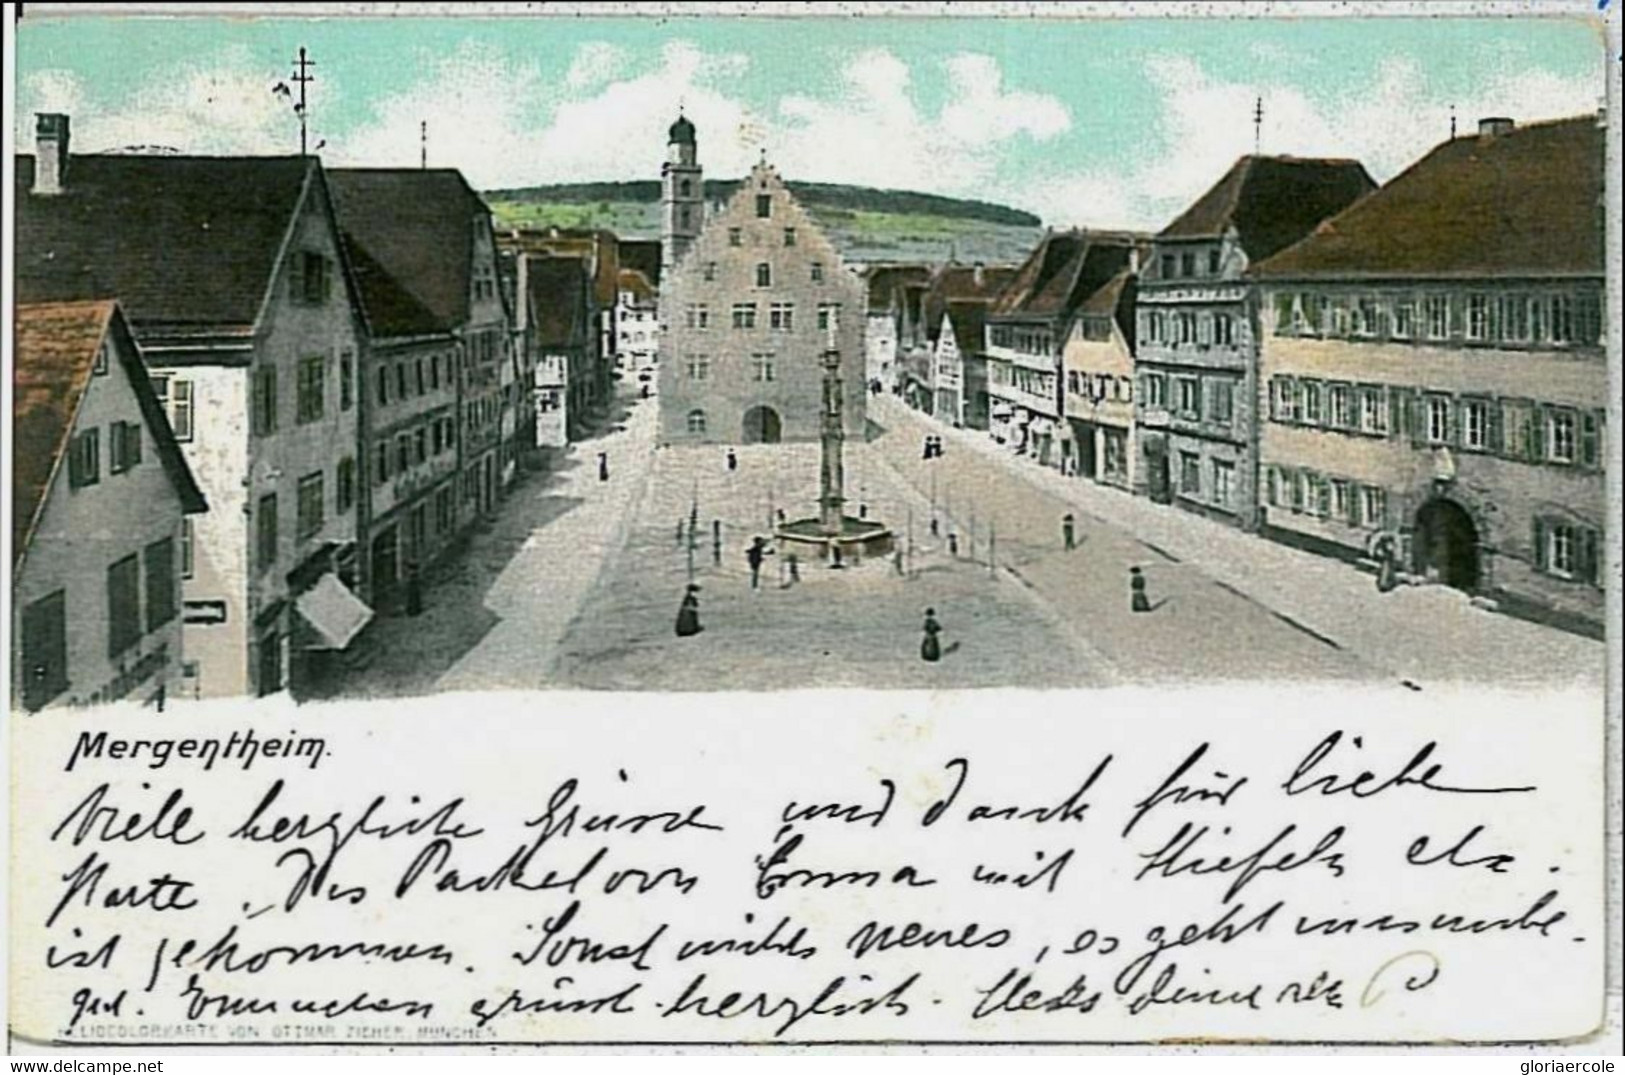 Mergentheim.
Viele herzliche Grüsse und Dank für liebe
Karte. Das Packet von Emma mit Stiefeln etz.
ist gekommen. Sonst nichts neues, es geht
gut. grüsst herzlich. Stets deine
HELIOCOLORKARTE VON OTTMAR ZIEHER, MÜNCHEN
www.delcampe.net
gloriaercole